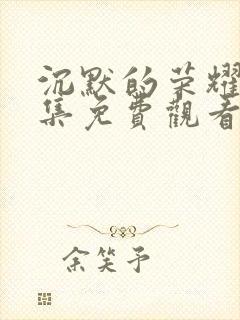 沉默的荣耀
集免費觀看
余笑予